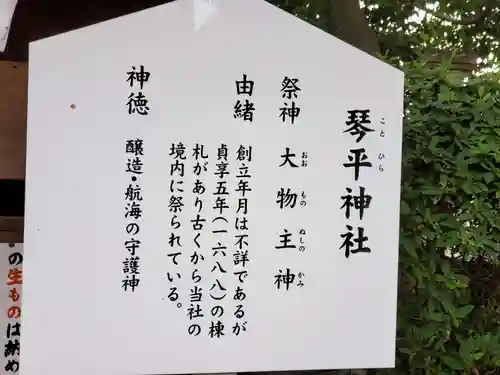 琴平神社
こと ひら
祭神 大物主神
おお もの ぬしの かみ
由緒 創立年月は不詳であるが
貞享五年(一六八八)の棟
札があり古くから当社の
境内に祭られている。
神徳 醸造・航海の守護神
の生ものは納め